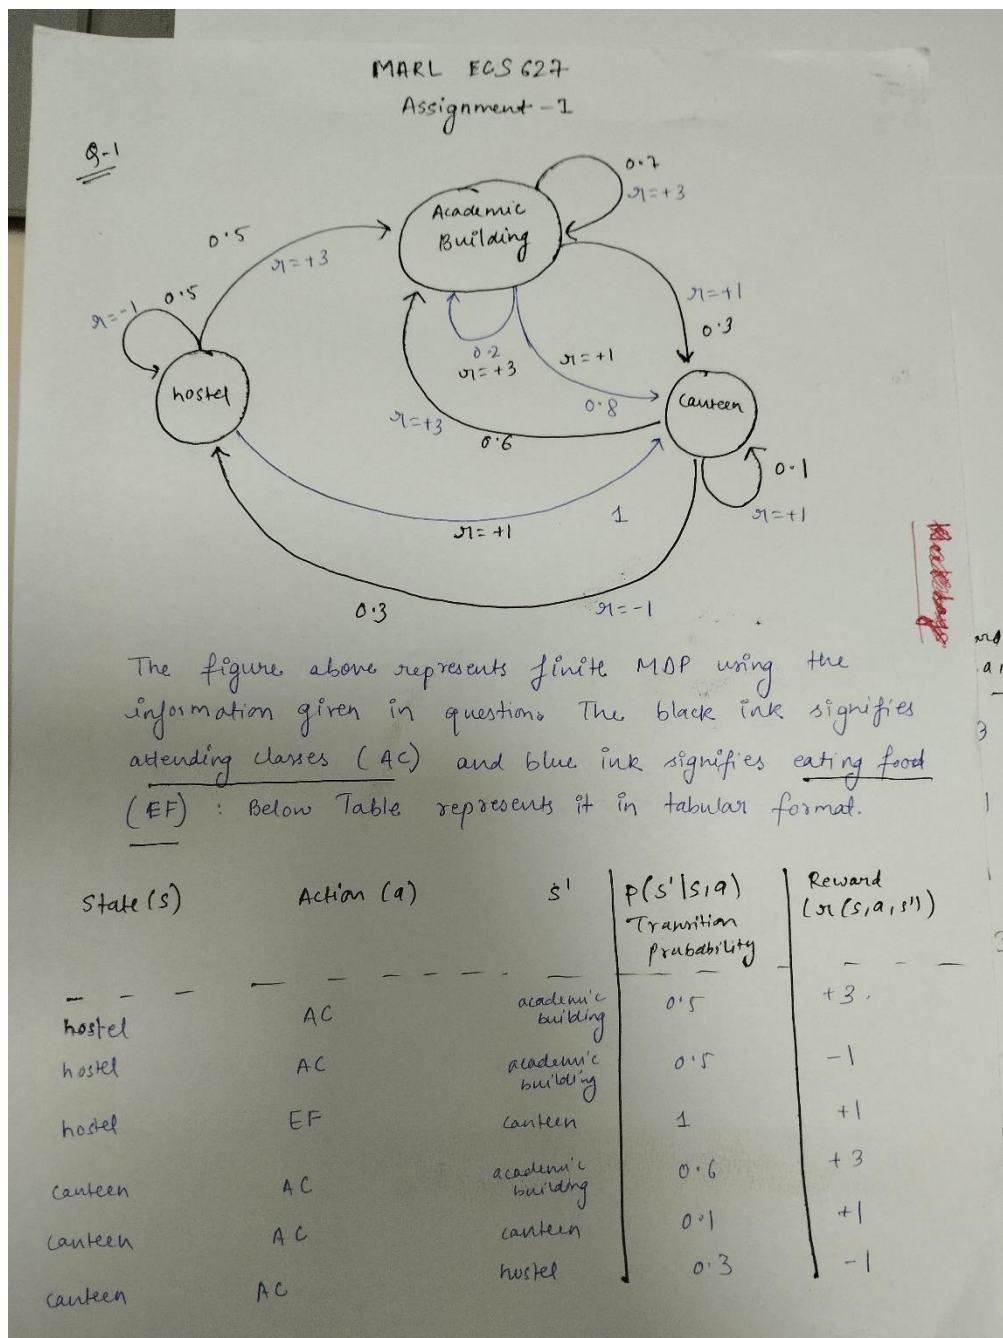 MARL ECS 627
Assignment - 1
Q-1
Academic
Building
0.7
r=+3
0.5
r=+3
r=-1
0.5
hostel
0.2
r=+3
r=+1
0.8
r=+1
0.3
canteen
r=+3
0.6
0.1
r=+1
r=+1
1
0.3
r=-1
The figure above represents finite MDP using the
information given in question. The black ink signifies
attending classes (AC) and blue ink signifies eating food
(EF) : Below Table represents it in tabular format.
State (s) Action (a) s' p(s'|s,a) Reward
(r(s,a,s'))
Transition
Probability
hostel AC academic building 0.5 +3.
hostel AC academic building 0.5 -1
hostel EF canteen 1 +1
canteen AC academic building 0.6 +3
canteen AC canteen 0.1 +1
canteen AC hostel 0.3 -1
3
1